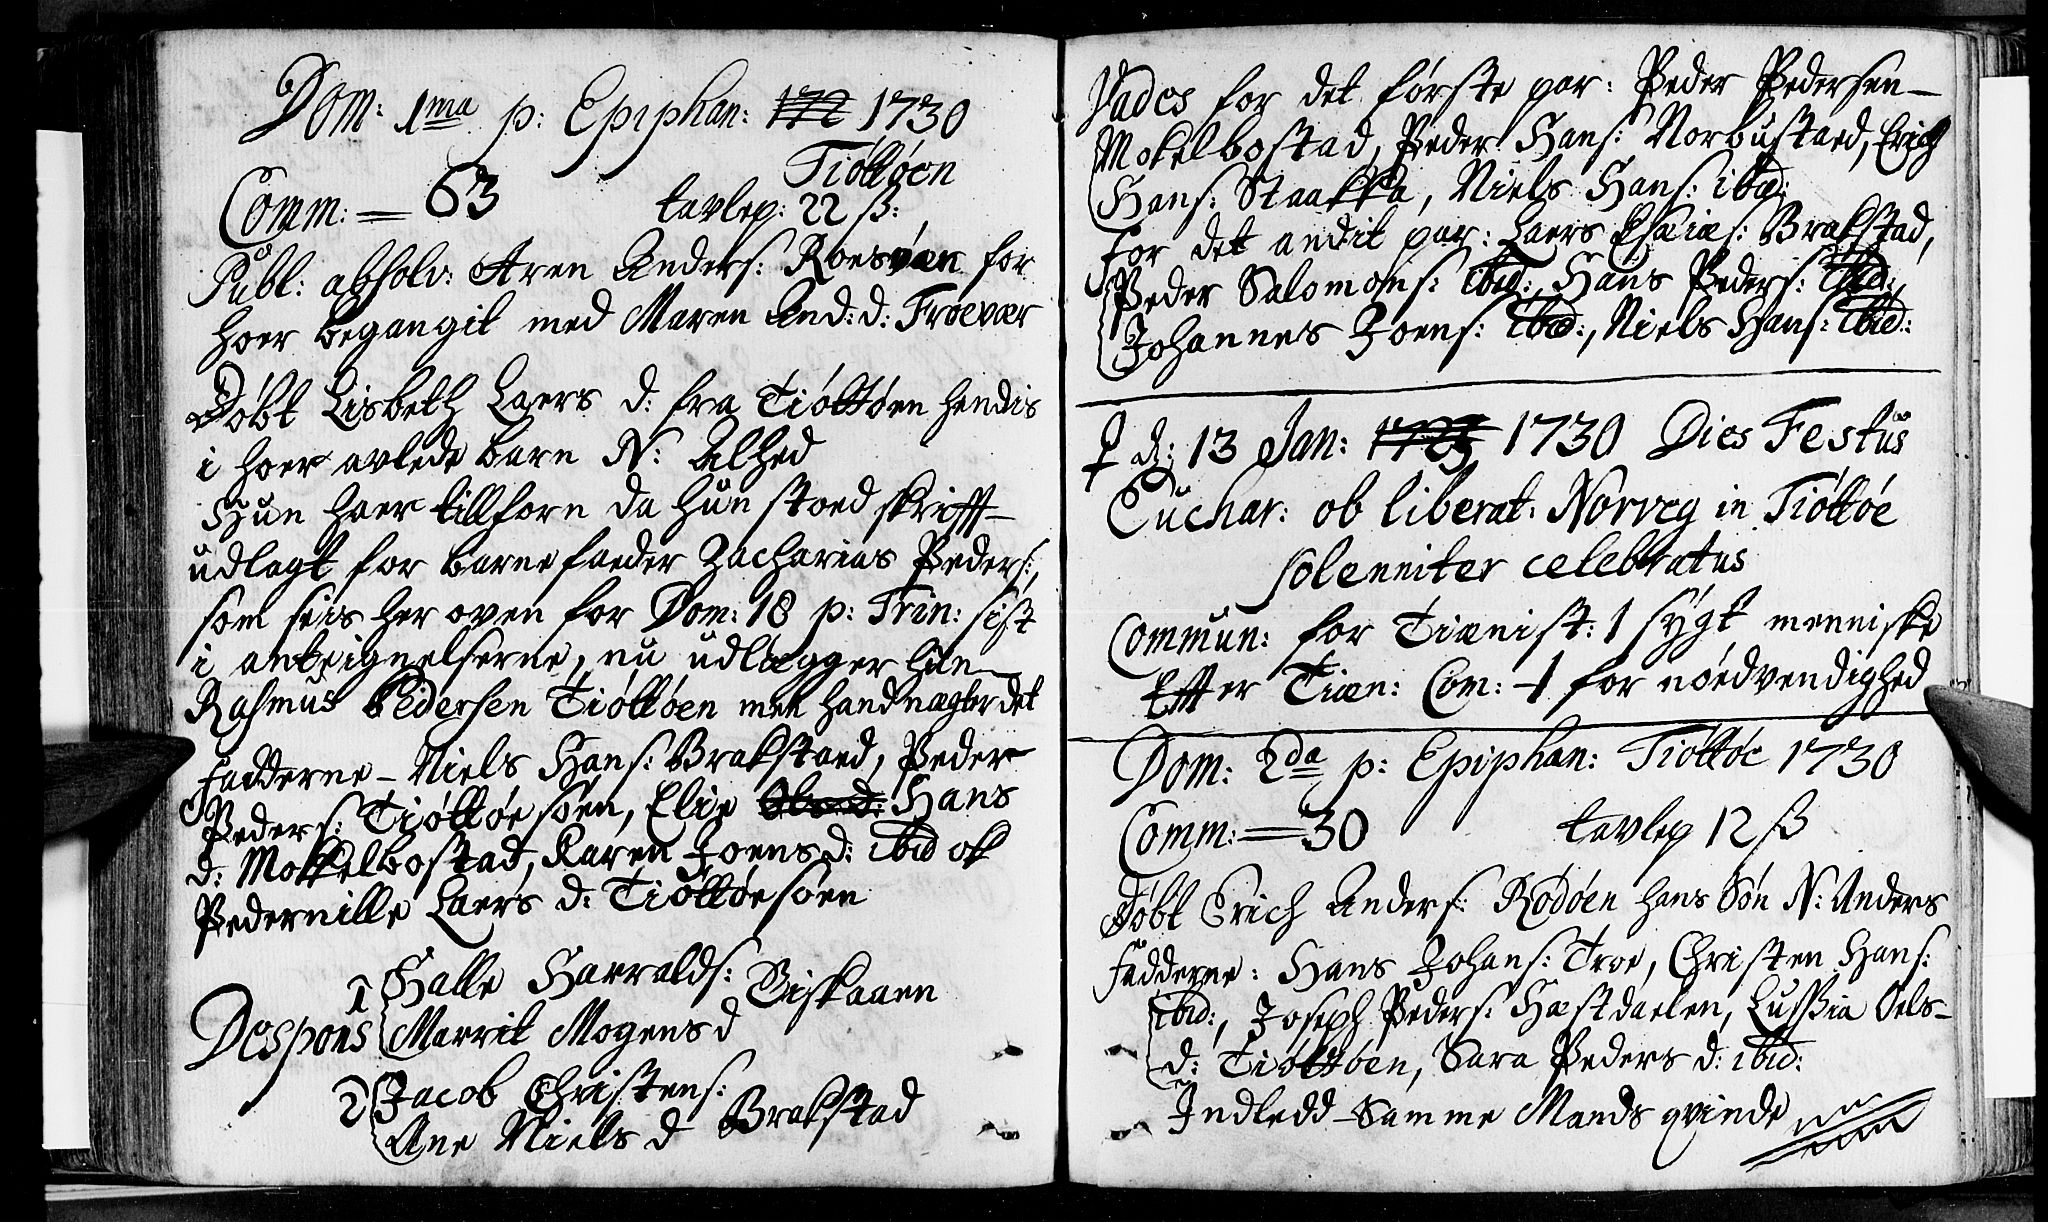 Dom: 1ma p: Epiphan: 172 1730
Tiøttøen
Comm: = 63 tavlep: 22 ß:
Publ: absolv: Aren Anders: Roesvæn for
hoer begangit med Maren And: d: Froevær
Døbt Lisbeth Laers d: fra Tiøttøen hendis
i hoer avlede barn N: Alhed
Hun haer tillforn da hun stoed skrifft-
udlagt for barnefaeder Zacharias Peders:,
som seis her oven for Dom: 18 p: Trin: sist
i anteignelserne, nu udlægger hun
Rasmus Pedersen Tiøttøen men hand nægter det
Fadderne - Niels Hans: Brakstaed, Peder
Peders: Tiøttøesøen, Elie Hans
d: Mokkelbostad, Karen Joens d: ibid ok
Pedernille Laers d: Tiøttøesøen
1 Halle Harralds: Biskaaen
Despons Marrit Mogens d
2 Jacob Christens:
Ane Niels d Brakstad
Vades for det første par: Peder Pedersen-
Mokelbostad, Peder Hans: Norbustaed, Erich
Hans: Staakka, Niels Hans: ibid:
for det andit par: Laers Esaias: Brakstad,
Peder Salomons: ibid:, Hans Peders: ibid:,
Johannes Joens: ibid:, Niels Hans: ibid:
♀ d: 13 Jan: 1729 1730 Dies Festus
Euchar: ob liberat: Norveg in Tiøttøe
solenniter celebratus
Commun: for Tiænist: 1 sygt menniske
Effter Tiæn: Com: -1 for nøedvendighed
Dom: 2da p: Epiphan: Tiøttøe 1730
Comm: = 30 tavlep 12 ß
Døbt Erich Anders: Rødøen hans Søn N: Anders
Fadderne: Hans Johans: Troe, Christen Hans:
ibid:, Joseph Peders: Hæstdaelen, Lussia Oels-
d: Tiøttøen, Sara Peders d: ibid:
Indledd - Samme Mands qvinde